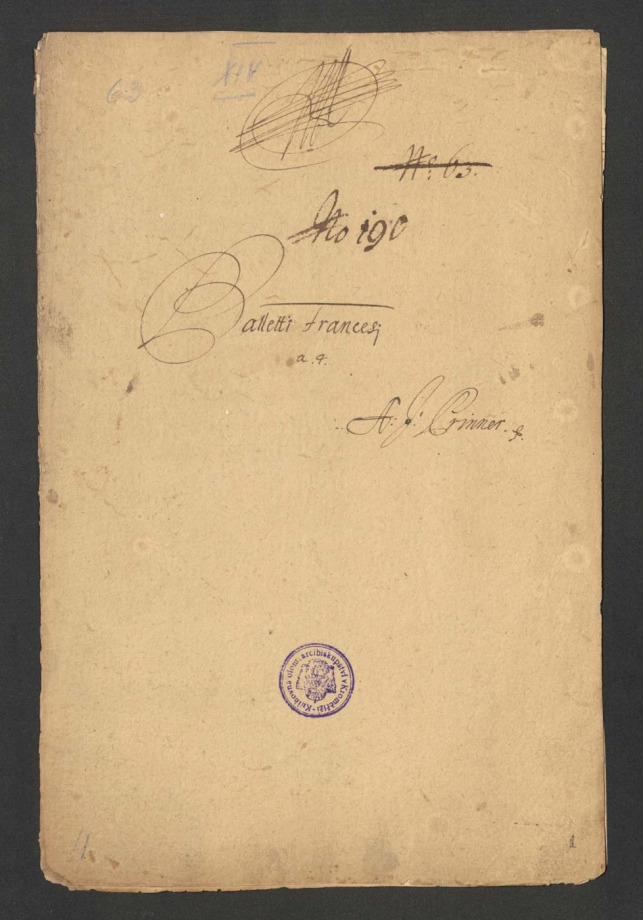 63 XIV
No: 63.
No 190
Balletti francesi
a. 4.
A: J: Prinner.
Knihovna olom. arcibiskupství v Kroměříži
11
1